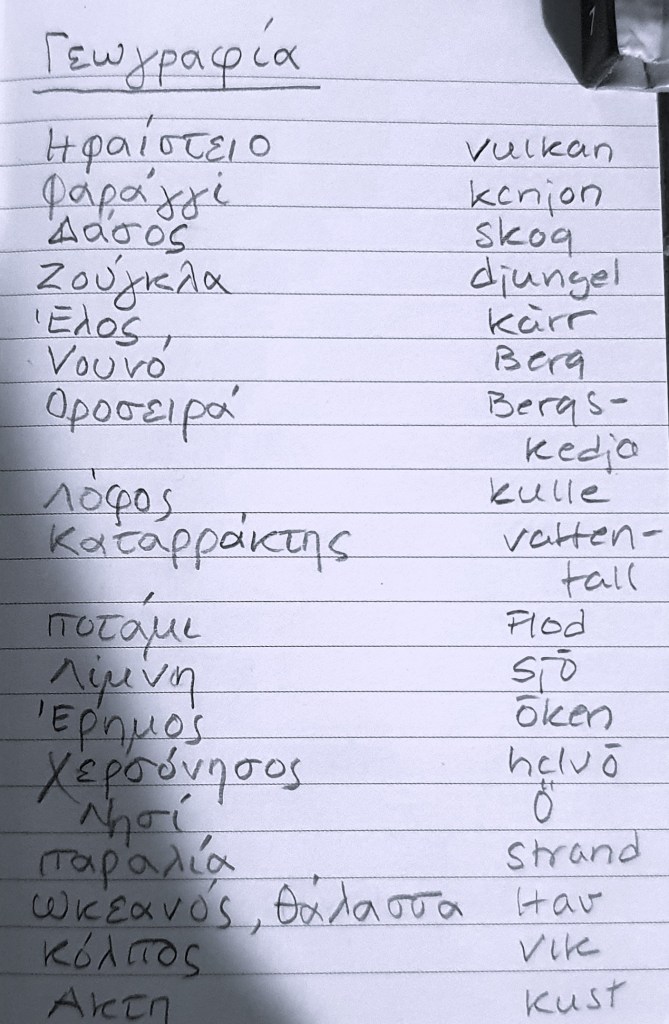 Γεωγραφία
Ηφαίστειο vulkan
Φαράγγί kanjon
Δάσος skog
Ζούγκλα djungel
Έλος, kärr
Υουνό Berg
Οροσειρά Bergs-
kedja
Λόφος kulle
Καταρράκτης vatten-
fall
ποτάμι Flod
Λίμνη sjö
Έρημος öken
Χερσόνησος halvö
Νησί Ö
παραλία strand
ωκεανός, θάλασσα Hav
κόλπος vik
Ακτη kust